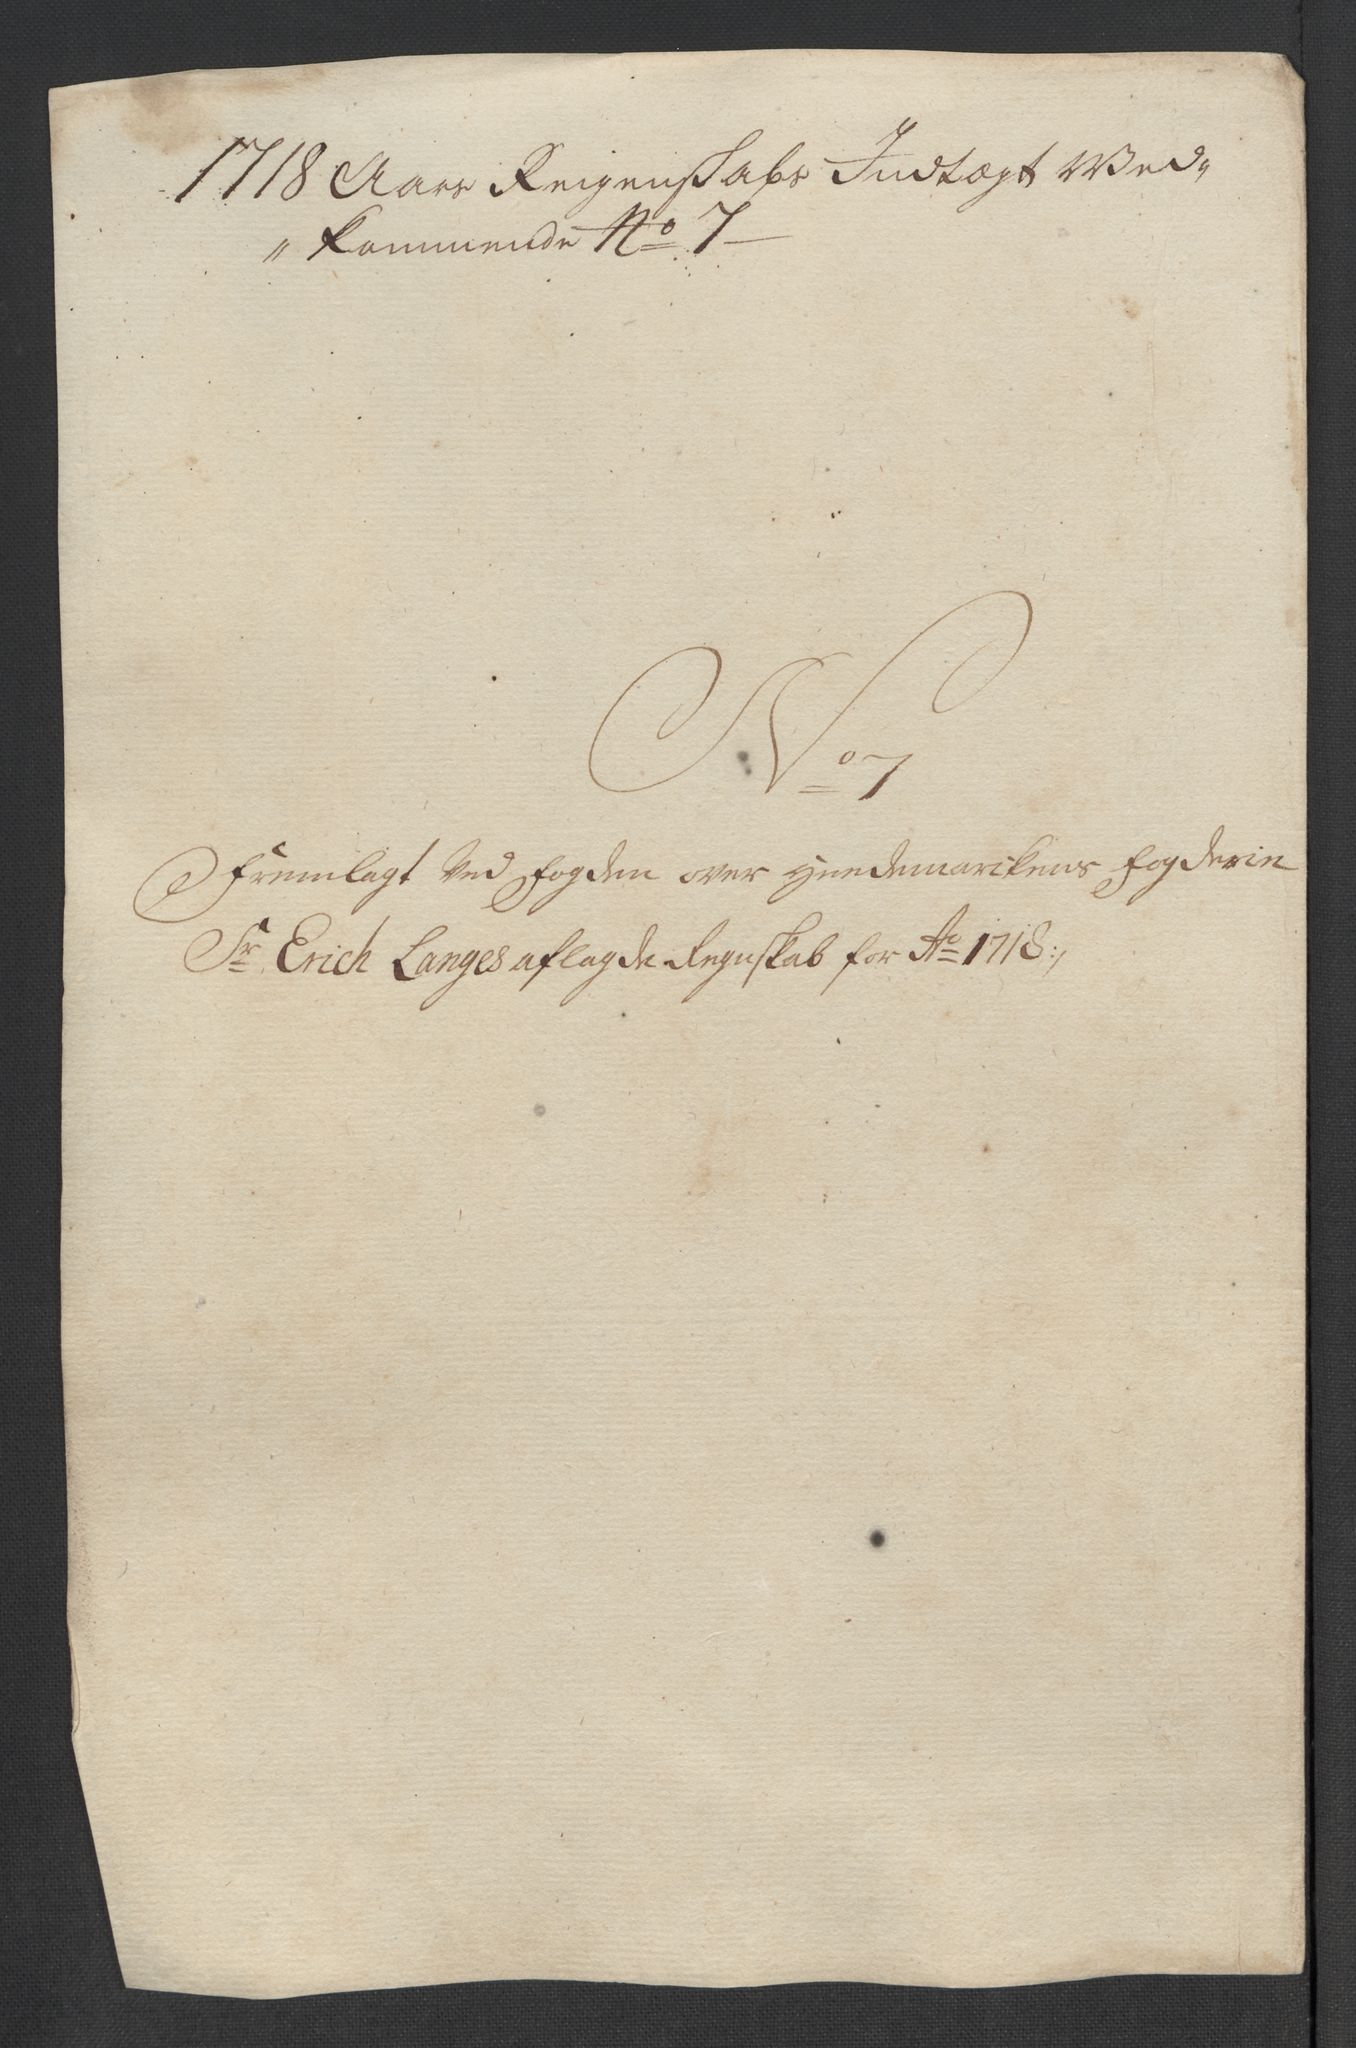 1718 Aars Reigenskabs Indtægt Ved„
„kommende No 7
No 7
Fremlagt Ved fogden over Heedemarckens fogderie
Sr. Erich Langes aflagde Regnskab for Ao 1718:/